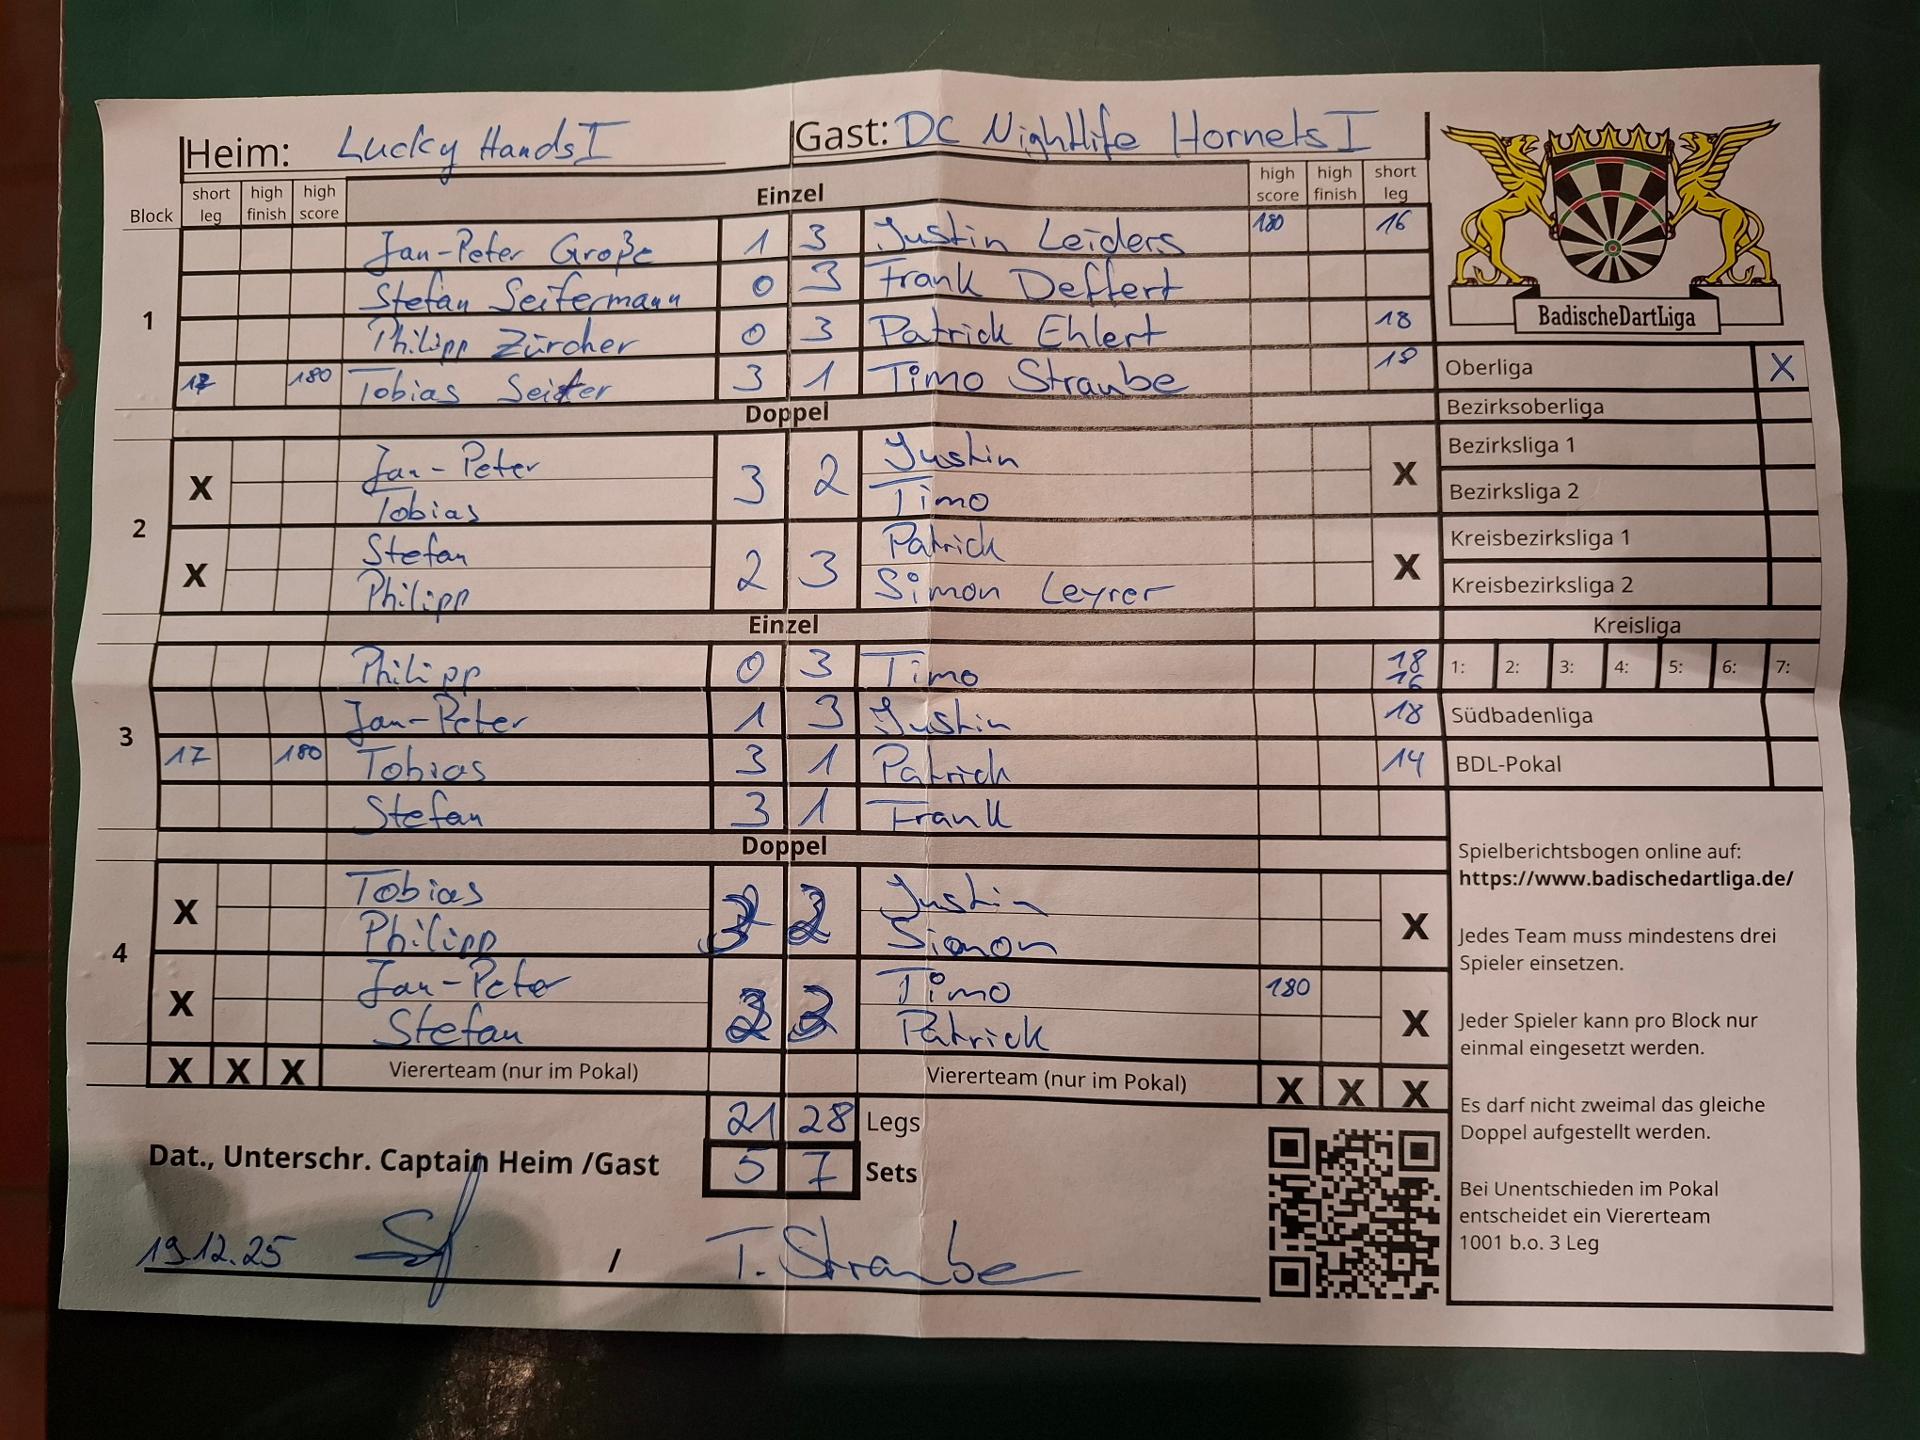 Heim: Lucky Hands I Gast: DC Nightlife Hornets I
Block short leg high finish high score Einzel high score high finish short leg
1
Jan-Peter Große 1 3 Justin Leiders 180 16
Stefan Seifermann 0 3 Frank Deffert
Philipp Zürcher 0 3 Patrick Ehlert 18
17 180 Tobias Seiter 3 1 Timo Straube 18
Doppel
2
X Jan-Peter 3 2 Justin X
Tobias Timo
X Stefan 2 3 Patrick X
Philipp Simon Leyrer
Einzel
3
Philipp 0 3 Timo 18 16
Jan-Peter 1 3 Justin 18
17 180 Tobias 3 1 Patrick 14
Stefan 3 1 Frank
Doppel
4
X Tobias 3 2 Justin X
Philipp Simon
X Jan-Peter Timo 180 X
Stefan Patrick
X X X Viererteam (nur im Pokal) Viererteam (nur im Pokal) X X X
21 28 Legs
5 7 Sets
Dat., Unterschr. Captain Heim /Gast
19.12.25 / T. Straube
BadischeDartLiga
Oberliga X
Bezirksoberliga
Bezirksliga 1
Bezirksliga 2
Kreisbezirksliga 1
Kreisbezirksliga 2
Kreisliga
1: 2: 3: 4: 5: 6: 7:
Südbadenliga
BDL-Pokal
Spielberichtsbogen online auf:
https://www.badischedartliga.de/
Jedes Team muss mindestens drei
Spieler einsetzen.
Jeder Spieler kann pro Block nur
einmal eingesetzt werden.
Es darf nicht zweimal das gleiche
Doppel aufgestellt werden.
Bei Unentschieden im Pokal
entscheidet ein Viererteam
1001 b.o. 3 Leg